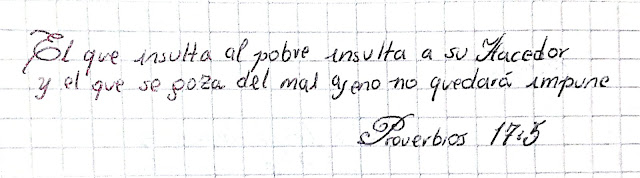 El que insulta al pobre insulta a su Hacedor
y el que se goza del mal ajeno no quedará impune
Proverbios 17:5